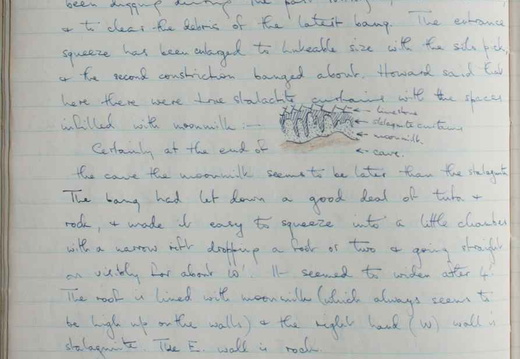 been digging during the past
& to clear the debris of the latest bang. The entrance
squeeze has been enlarged to Luke able size with the sids. pick,
& the second constriction banged about. Howard said that
here there were true stalactite curtains with the spaces
infilled with moonmilk :-
← limestone
← stalagmite curtains
← moonmilk
← cave.
Certainly at the end of
the cave the moonmilk seems to be later than the stalagmite
The bang had let down a good deal of tufa &
rock, & made it easy to squeeze into a little chamber
with a narrow rift dropping a foot or two & going straight
on visibly for about 10'. It seemed to widen after 4'
The roof is lined with moonmilk (which always seems to
be high up on the walls) & the right hand (W) wall is
stalagmite. The E. wall is rock.